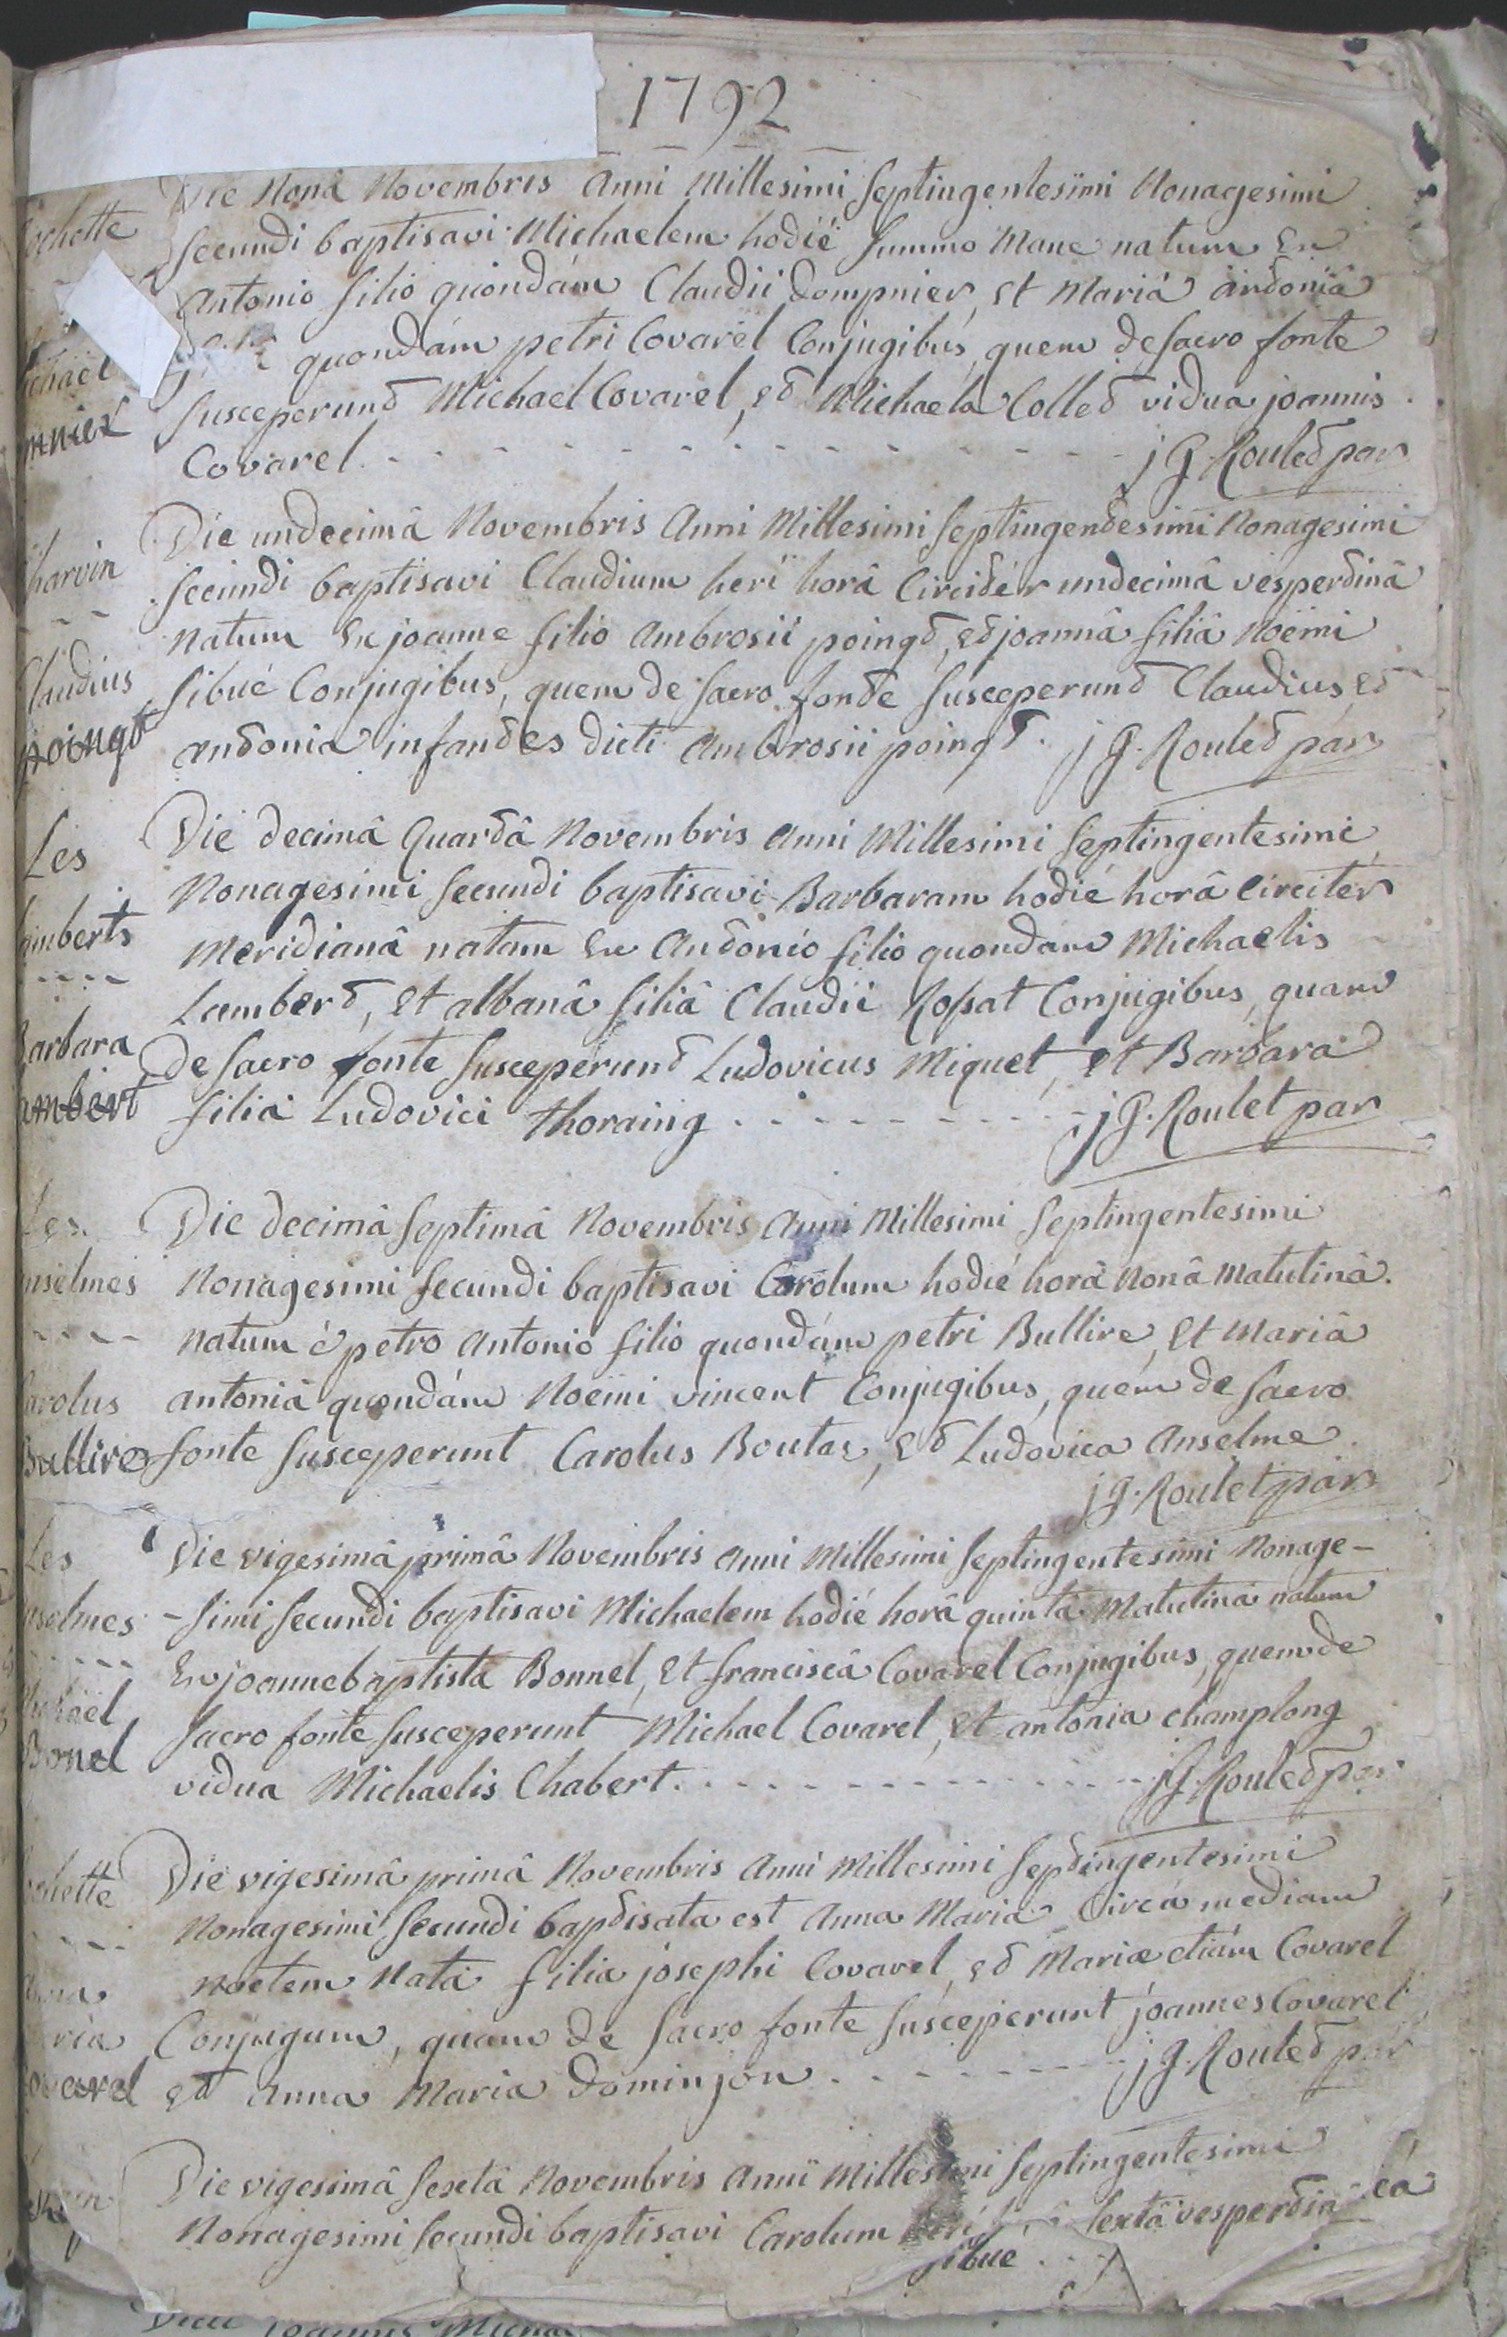 1792
Die Nonâ Novembris Anni Millesimi Septingentesimi Nonagesimi
ochette
Secundi baptisavi Michaelem hodiè Summo Mane natum Ex
Antonio filio quondám Claudii Dompnier, et Mariâ antoniâ
quondám petri Covarel Conjugibus, quem de Sacro fonte
ichael
Susceperunt Michael Covarel, et Michaela Collet vidua joannis
mnier
Covarel - - - - - - - - - - - - - j G. Roulet par
Die undecimâ Novembris Anni Millesimi Septingentesimi Nonagesimi
harvin
Secundi baptisavi Claudium heri horâ Circitér undecimâ vespertinâ
- - -
Natum Ex joanne filio Ambrosii poingt, et joannâ filiâ Noëmi
Claudius
Sibué Conjugibus, quem de Sacro fonte Susceperunt Claudius, et
poingt
antonia infantes dicti Ambrosii poingt. j G. Roulet par
Les
Die decimâ Quartâ Novembris Anni Millesimi Septingentesimi
Nonagesimi Secundi baptisavi Barbaram hodié horâ Circitér
amberts
- - - -
Meridianâ natam Ex Antonio filio quondám Michaelis
Lambert, et albanâ filiâ Claudii Rossat Conjugibus, quam
Barbara
de Sacro fonte Susceperunt Ludovicus Miquet, et Barbara
ambert
filia Ludovici Thoraing - - - - - - - - - j G. Roulet par
Les
Die decimâ Septimâ Novembris Anni Millesimi Septingentesimi
nselmes
Nonagesimi Secundi baptisavi Carolum hodié horâ Nonâ Matutinâ
- - - -
Natum é petro Antonio filio quondám petri Bullire, et Mariâ
arolus
antoniâ quondám Noëmi vincent Conjugibus, quem de Sacro
Bullire
fonte Susceperunt Carolus Boutaz, et Ludovica Anselme
j G. Roulet par
Les
Die vigesimâ primâ Novembris Anni Millesimi Septingentesimi Nonage-
nselmes
-simi Secundi baptisavi Michaelem hodié horâ quintâ Matutinâ natum
- - - -
Ex joanne baptista Bonnel, et franciscâ Covarel Conjugibus, quem de
Michaël
Sacro fonte Susceperunt Michael Covarel, et antonia champlong
Bonel
vidua Michaelis Chabert. - - - - - - - - - j G. Roulet par
ochette
Die vigesimâ primâ Novembris Anni Millesimi Septingentesimi
- - - -
Nonagesimi Secundi baptisata est Anna Maria Circá mediam
Noctem Nata filia josephi Covarel, et Mariæ etiám Covarel
aria
Conjugum, quam de Sacro fonte Susceperunt joannes Covarel
Covarel
et Anna Maria Dominjon - - - - - - - j G. Roulet par
Die vigesimâ Sextâ Novembris Anni Millesimi Septingentesimi
Nonagesimi Secundi baptisavi Carolum heri Sextâ vespertinâ
Sibué